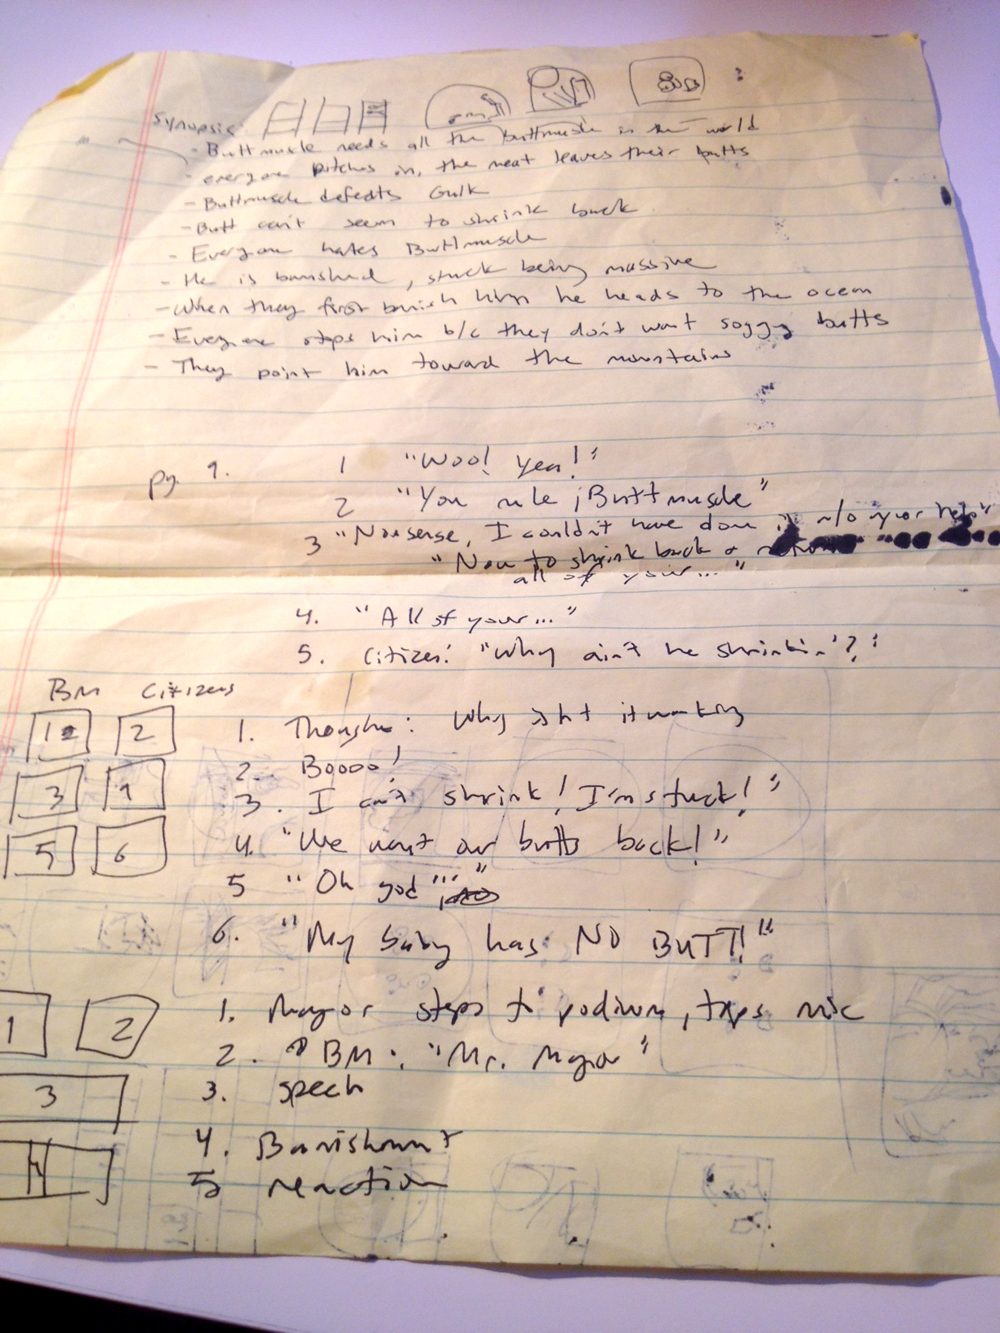 Synopsis:
- Buttmuscle needs all the buttmuscle in the world
- everyone pitches in, the meat leaves their butts
- Buttmuscle defeats Gulk
- Butt can't seem to shrink back
- Everyone hates Buttmuscle
- He is banished, stuck being massive
- When they first banish him he heads to the ocean
- Everyone stops him b/c they don't want soggy butts
- They point him toward the mountains
pg 1. 1 "Woo! Yea!"
2 "You rule, Buttmuscle"
3 "Nonsense, I couldn't have done it w/o your help"
"Now to shrink back &
all of your..."
4. "All of your..."
5. Citizen: "Why ain't he shrinkin'?"
BM Citizens
1 2 1. Thought: Why isn't it working
2. Boooo!
3 4 3. I can't shrink! I'm stuck!"
5 6 4. "We want our butts back!"
5 "Oh god"..."
6. "My baby has NO BUTT!"
1 2 1. Mayor steps to podium, taps mic
2. BM: "Mr. Mayor"
3 3. speech
4. Banishment
5 reaction